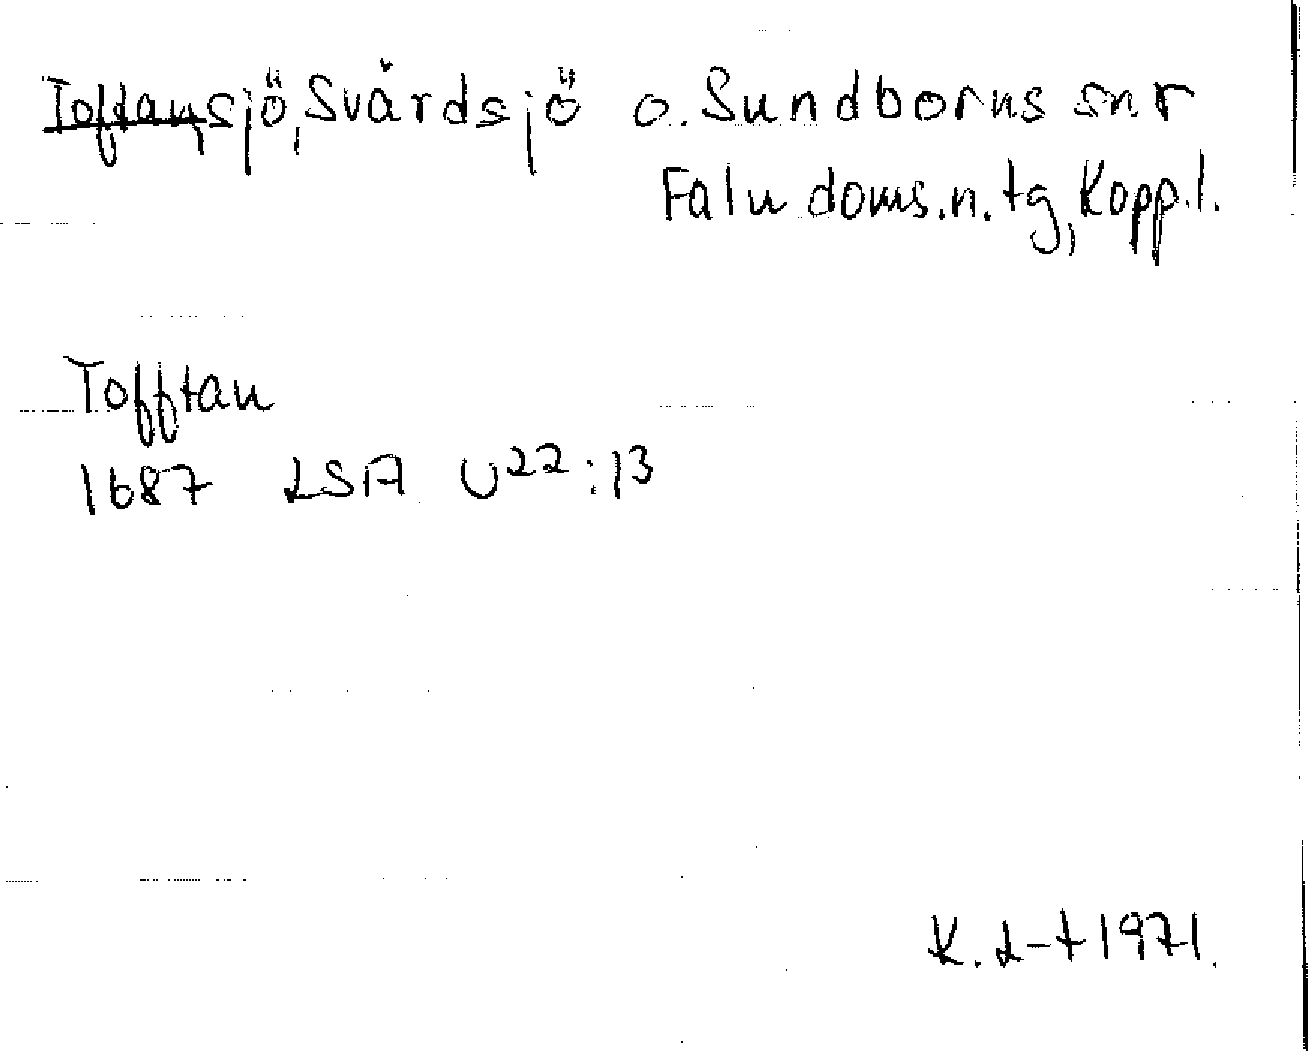 Toftan, sjö, Svärdsjö o. Sundborns snr
Falu doms.n.tg, Kopp.l.
Tofftan
1687 LSA U22:13
K. L-t 1971.